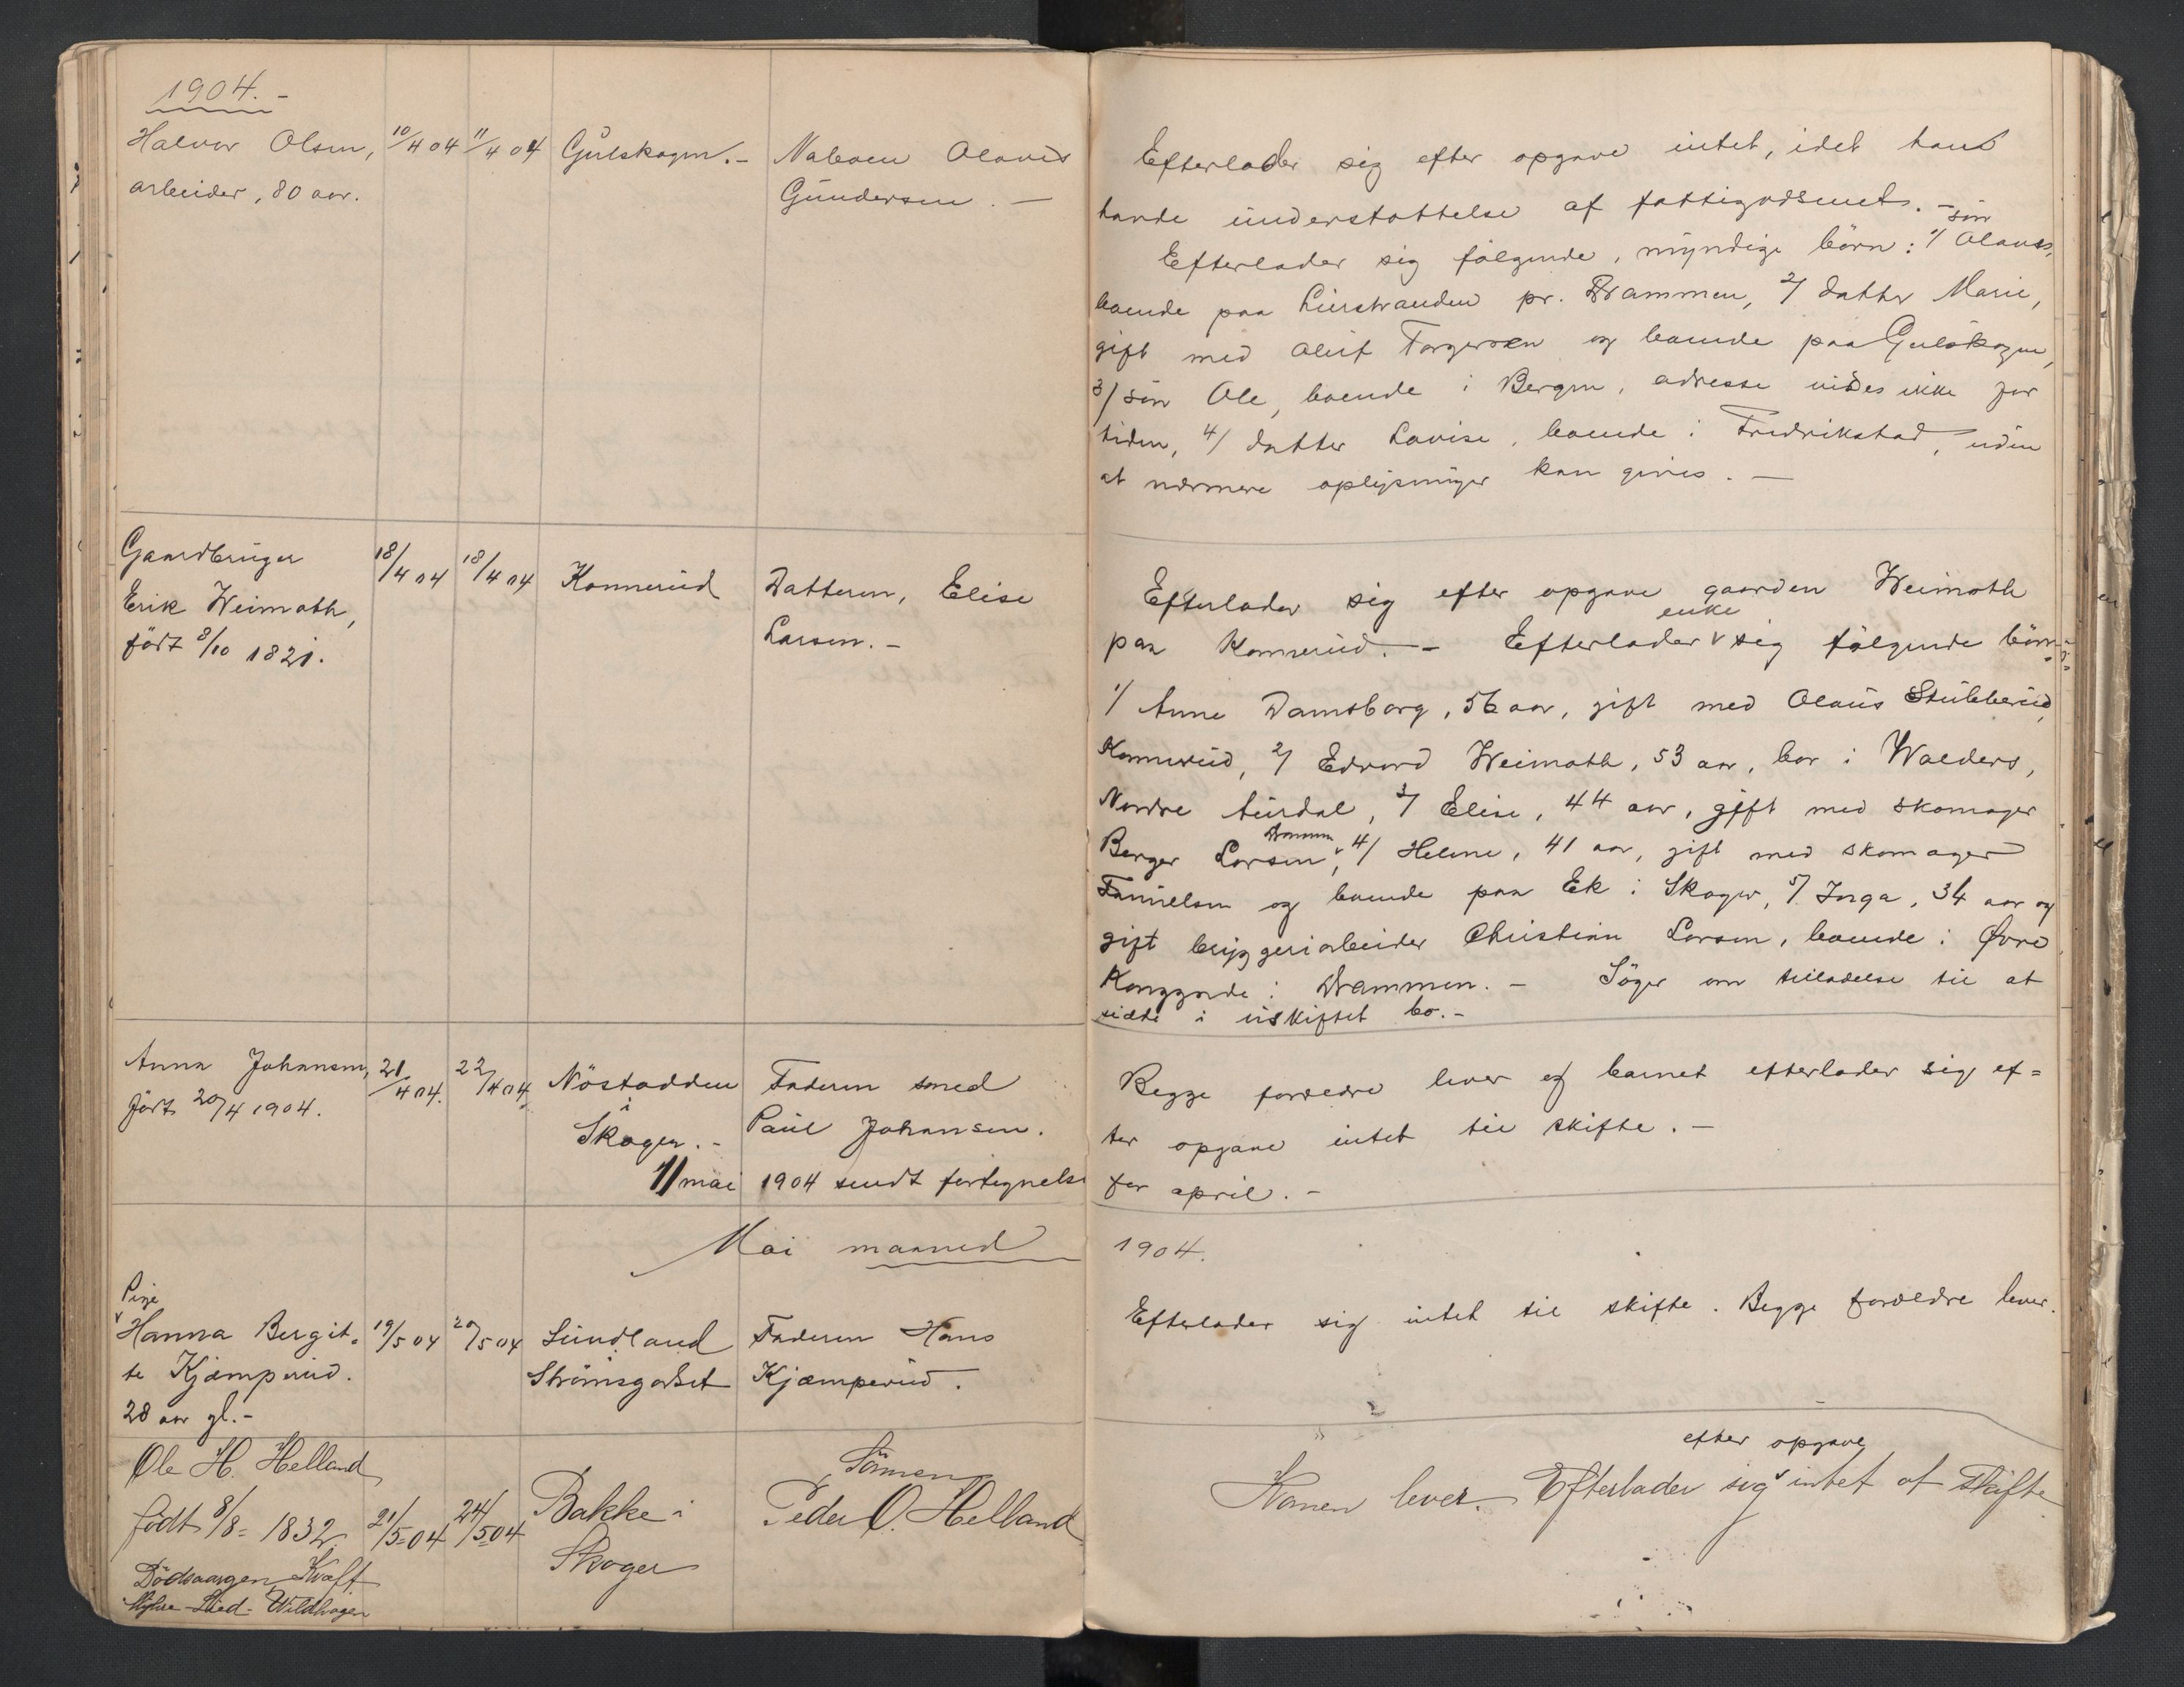 1904. -
Halvor Olsen, 10/4 04 11/4 04 Gulskogen. - Naboen Olavus
arbeider, 80 aar. Gundersen. -
Efterlader sig efter opgave intet, idet hans
havde understøttelse af fattigvæsenet. -
Efterlader sig følgende, myndige børn: 1/ søn Olaus,
boende paa Lierstranden pr. Drammen, 2/ datter Marie,
gift med Oluf Torgersen og boende paa Gulskogen,
3/ søn Ole, boende i Bergen, adresse vides ikke for
tiden, 4/ datter Lovise, boende i Fredrikstad, uden
at nærmere oplysninger kan gives. -
Gaardbruger 18/4 04 18/4 04 Konnerud Datteren, Elise
Erik Weimoth, Larsen. -
født 8/10 1821.
Efterlader sig efter opgave gaarden Weimoth
paa Konnerud. - Efterlader enke sig følgende børn:
1/ Anne Damsborg, 56 aar, gift med Olaus Stubberud,
Konnerud, 2/ Edvard Weimoth, 53 aar, bor i Valders,
Nordre Aurdal, 3/ Elise, 44 aar, gift med skomager
Berger Larsen, Drammen, 4/ Helene, 41 aar, gift med skomager
og boende paa Ek i Skoger, 5/ Inga, 34 aar og
gift bryggeriarbeider Christian Larsen, boende i Øvre
Konggade i Drammen. - Søger om tilladelse til at
sidde i uskiftet bo. -
Anna Johansen, 21/4 04. 22/4 04. Nøstodden Faderen smed
født 20/4 1904. i Skoger. - Paul Johansen.
Begge forældre lever og barnet efterlader sig ef=
ter opgave intet til skifte. -
11 mai 1904 sendt fortegnelse for april. -
Mai maaned 1904.
Pige
Hanna Bergit= 19/5 04 20/5 04 Sundland Faderen Hans
te Kjæmperud. Strømsgodset Kjæmperud.
28 aar gl. -
Efterlader sig intet til skifte. Begge forældre lever.
Ole H. Helland Sønnen
født 8/8 = 1832 21/5-04 24/5-04 Bakke i Peder O. Helland
Skoger
Dødsaarsagen Kræft
Konen lever. Efterlader sig efter opgave intet at skifte